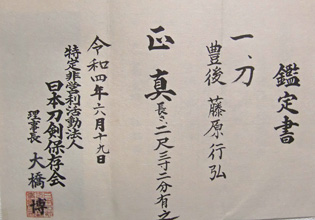 鑑定書
一、刀
豊後 藤原行弘
正真 長さ二尺三寸二分有之
令和四年六月十九日
特定非営利活動法人
日本刀剣保存会
理事長 大橋
博